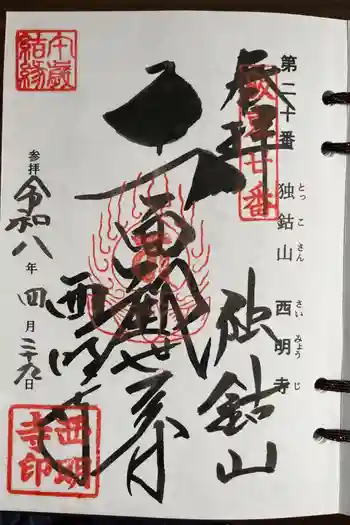 第二十番　独鈷山　西明寺
とっこさん　さいみょうじ
奉拝
坂東廿番
独鈷山
面観世音
西明寺
午歳
結縁
参拝　令和八年四月二十九日
西明
寺印